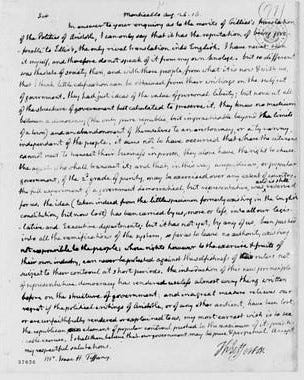 Sir Monticello Aug. 26. 16
In answer to your enquiry as to the merits of Gillies's translation
of the Politics of Aristotle, I can only say that it has the reputation of being
preferable to Ellis's, the only rival translation into English. I have never seen
it myself, and therefore do not speak of it from my own knolege. but so different
was the style of society then, and with those people, from what it is now & with us,
that I think little edification can be obtained from their writings on the subject of
government. they had just ideas of the value of personal liberty, but none at all
of the structure of government best calculated to preserve it. they knew no medium
between a democracy (the only pure republic, but impracticable beyond the limits
of a town) and an abandonment of themselves to an aristocracy, or a tyranny,
independant of the people. it seems not to have occurred that where the citizens
cannot meet to transact their business in person, they alone have the right to chuse
the agents who shall transact it; and that, in this way, a republican, or popular
government, of the 2d grade of purity, may be exercised over any extent of country.
the full experiment of a government democratical, but representative, was & is still reserved
for us. the idea (taken indeed from the little specimen formerly existing in the English
constitution, but now lost) has been carried by us, more or less, into all our legis-
lative and Executive departments; but it has not yet, by any of us, been pushed
into all the ramifications of the system, so far as to leave no authority existing
not responsible to the people; whose rights however to the exercise & fruits of
their own industry, can never be protected against the selfishness of rulers not
subject to their controul at short periods. the introduction of this new principle
of representative democracy has rendered useless almost every thing written
before on the structure of government; and in a great measure relieves our
regret if the political writings of Aristotle, or of any other antient, have been lost,
or are unfaithfully rendered or explained to us. my most earnest wish is to see
the republican element of popular controul pushed to the maximum of it's practi-
cable exercise. I shall then believe that our government may be pure & perpetual. Accept
my respectful salutations.
Th: Jefferson
Mr. Isaac H. Tiffany